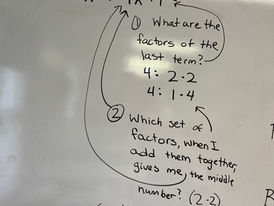 ① What are the
factors of the
last term?
4: 2·2
4: 1·4
② Which set of
factors, when I
add them together,
gives me, the middle
number? (2·2)